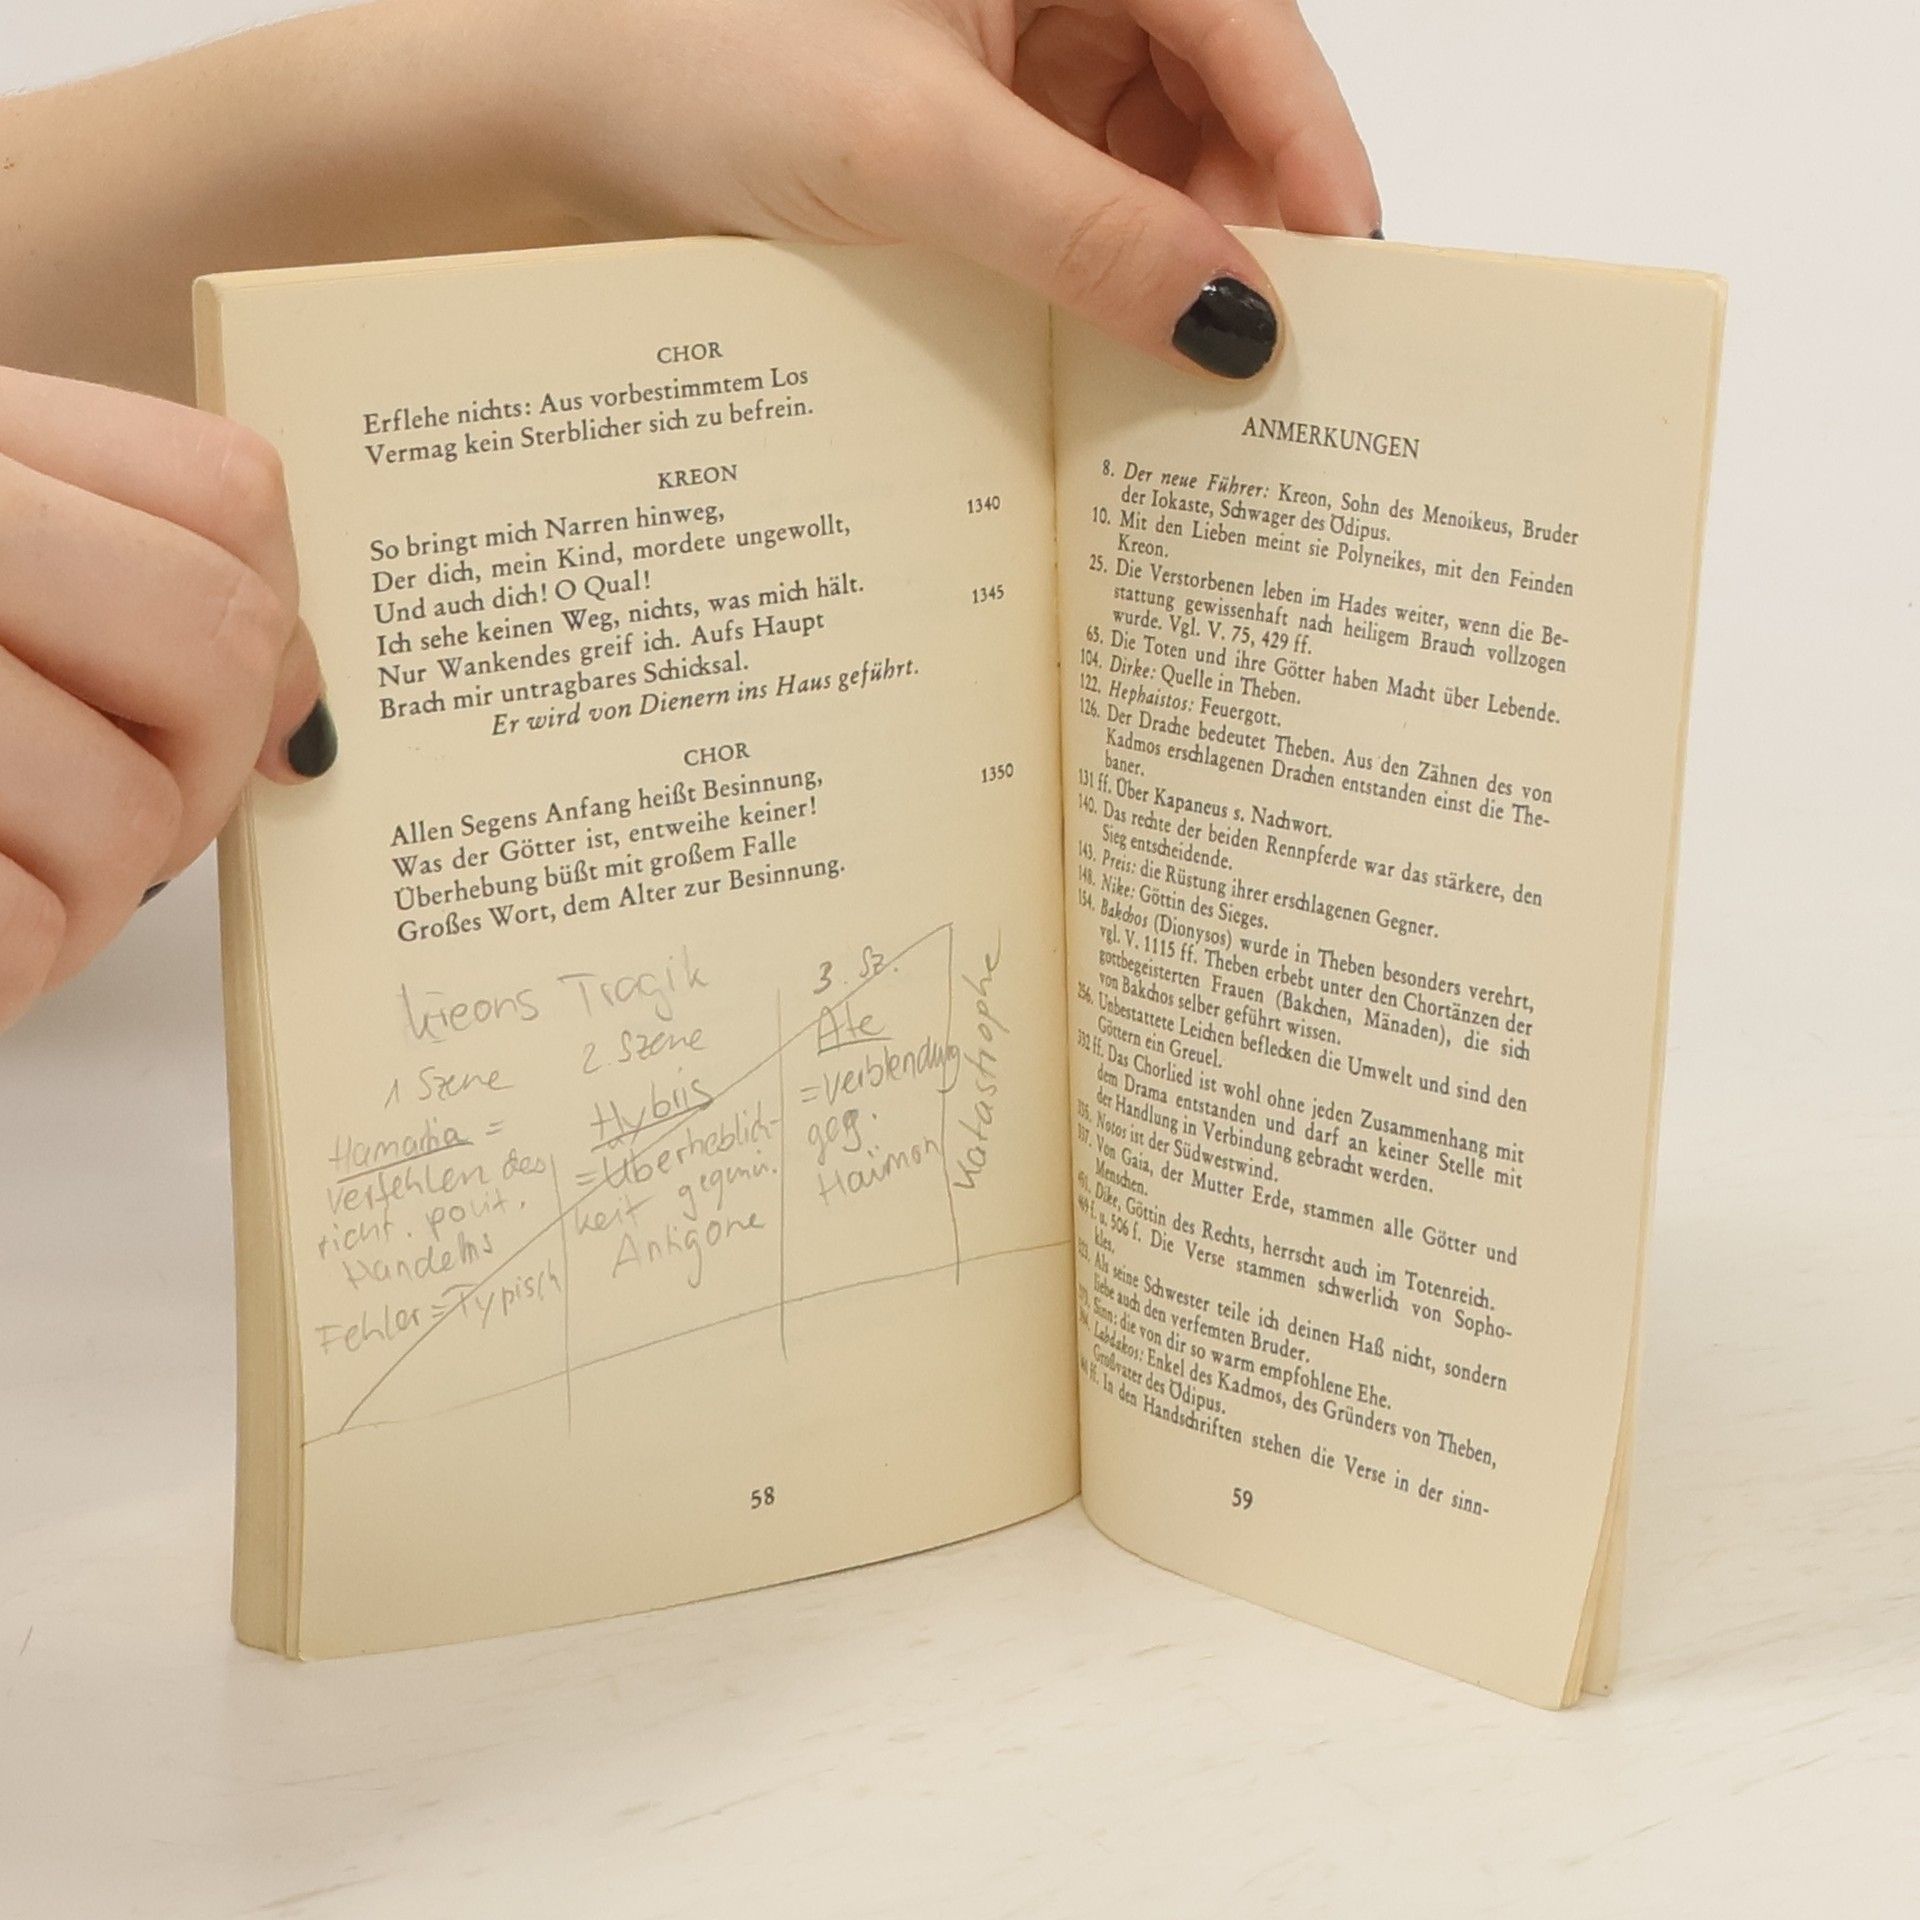 CHOR
Erflehe nichts: Aus vorbestimmtem Los
Vermag kein Sterblicher sich zu befrein.
KREON
So bringt mich Narren hinweg,
Der dich, mein Kind, mordete ungewollt, 1340
Und auch dich! O Qual!
Ich sehe keinen Weg, nichts, was mich hält.
Nur Wankendes greif ich. Aufs Haupt 1345
Brach mir untragbares Schicksal.
Er wird von Dienern ins Haus geführt.
CHOR
Allen Segens Anfang heißt Besinnung,
Was der Götter ist, entweihe keiner! 1350
Überhebung büßt mit großem Falle
Großes Wort, dem Alter zur Besinnung.
Kreons Tragik
1 Szene
Hamartia =
verfehlen des
richt. polit.
Handelns
Fehler = Typisch
2. Szene
Hybris
= Überheblich-
keit gegenü.
Antigone
3. Sz.
Ate
= Verblendung
geg.
Haimon
Katastrophe
58
ANMERKUNGEN
8. Der neue Führer: Kreon, Sohn des Menoikeus, Bruder
der Iokaste, Schwager des Ödipus.
10. Mit den Lieben meint sie Polyneikes, mit den Feinden
Kreon.
25. Die Verstorbenen leben im Hades weiter, wenn die Be-
stattung gewissenhaft nach heiligem Brauch vollzogen
wurde. Vgl. V. 75, 429 ff.
65. Die Toten und ihre Götter haben Macht über Lebende.
104. Dirke: Quelle in Theben.
122. Hephaistos: Feuergott.
126. Der Drache bedeutet Theben. Aus den Zähnen des von
Kadmos erschlagenen Drachen entstanden einst die The-
baner.
131 ff. Über Kapaneus s. Nachwort.
140. Das rechte der beiden Rennpferde war das stärkere, den
Sieg entscheidende.
143. Preis: die Rüstung ihrer erschlagenen Gegner.
148. Nike: Göttin des Sieges.
154. Bakchos (Dionysos) wurde in Theben besonders verehrt,
vgl. V. 1115 ff. Theben erbebt unter den Chortänzen der
gottbegeisterten Frauen (Bakchen, Mänaden), die sich
von Bakchos selber geführt wissen.
256. Unbestattete Leichen beflecken die Umwelt und sind den
Göttern ein Greuel.
332 ff. Das Chorlied ist wohl ohne jeden Zusammenhang mit
dem Drama entstanden und darf an keiner Stelle mit
der Handlung in Verbindung gebracht werden.
335. Notos ist der Südwestwind.
337. Von Gaia, der Mutter Erde, stammen alle Götter und
Menschen.
451. Dike, Göttin des Rechts, herrscht auch im Totenreich.
469 f. u. 506 f. Die Verse stammen schwerlich von Sopho-
kles.
523. Als seine Schwester teile ich deinen Haß nicht, sondern
liebe auch den verfemten Bruder.
Sinn: die von dir so warm empfohlene Ehe.
Labdakos: Enkel des Kadmos, des Gründers von Theben,
Großvater des Ödipus.
ff. In den Handschriften stehen die Verse in der sinn-
59